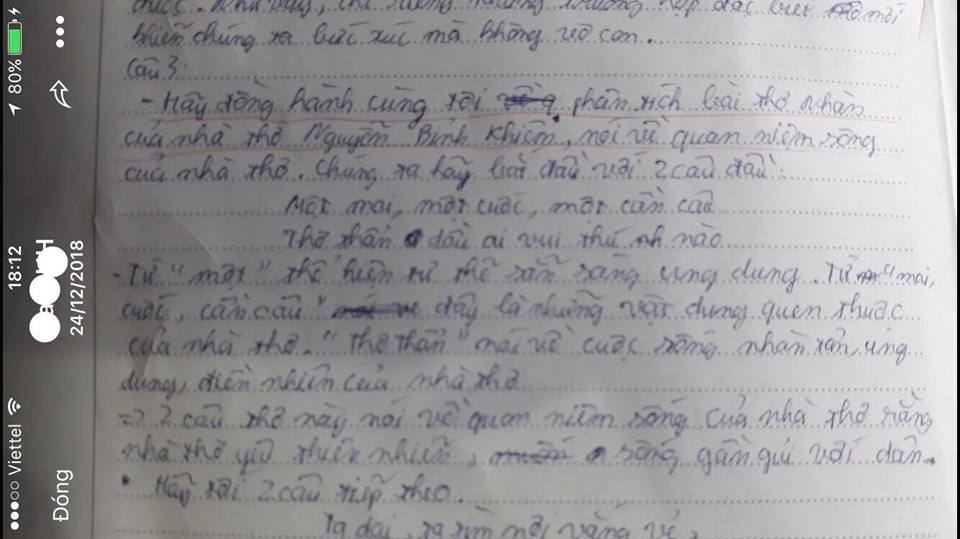 80%
18:12
24/12/2018
Viettel
Đóng
khiến chúng ta bức xúc mà không vô can.
Câu 3:
- Hãy đồng hành cùng tôi phân tích bài thơ Nhàn
của nhà thơ Nguyễn Bỉnh Khiêm, nói về quan niệm sống
của nhà thơ. Chúng ta hãy bắt đầu với 2 câu đầu:
Một mai, một cuốc, một cần câu
Thơ thẩn dầu ai vui thú nào
- Từ "một" thể hiện tư thế sẵn sàng ung dung. Từ "mai,
cuốc, cần câu" đây là những vật dụng quen thuộc
của nhà thơ. "Thơ thẩn" nói về cuộc sống nhàn tản, ung
dung, điền nhiên của nhà thơ
=> 2 câu thơ này nói về quan niệm sống của nhà thơ rằng
nhà thơ yêu thiên nhiên, sống gần gũi với dân.
* Hãy tới 2 câu tiếp theo.
Ta dại, ta tìm nơi vắng vẻ,